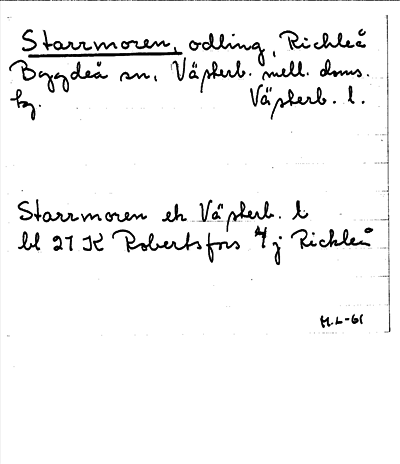 Starrmoren, odling, Rickleå
Bygdeå sn, Västerb. mell. doms.
hg. Västerb. l.
Starrmoren ek Västerb. l
bl 21 K Robertsfors 4 j Rickleå
M.L-61